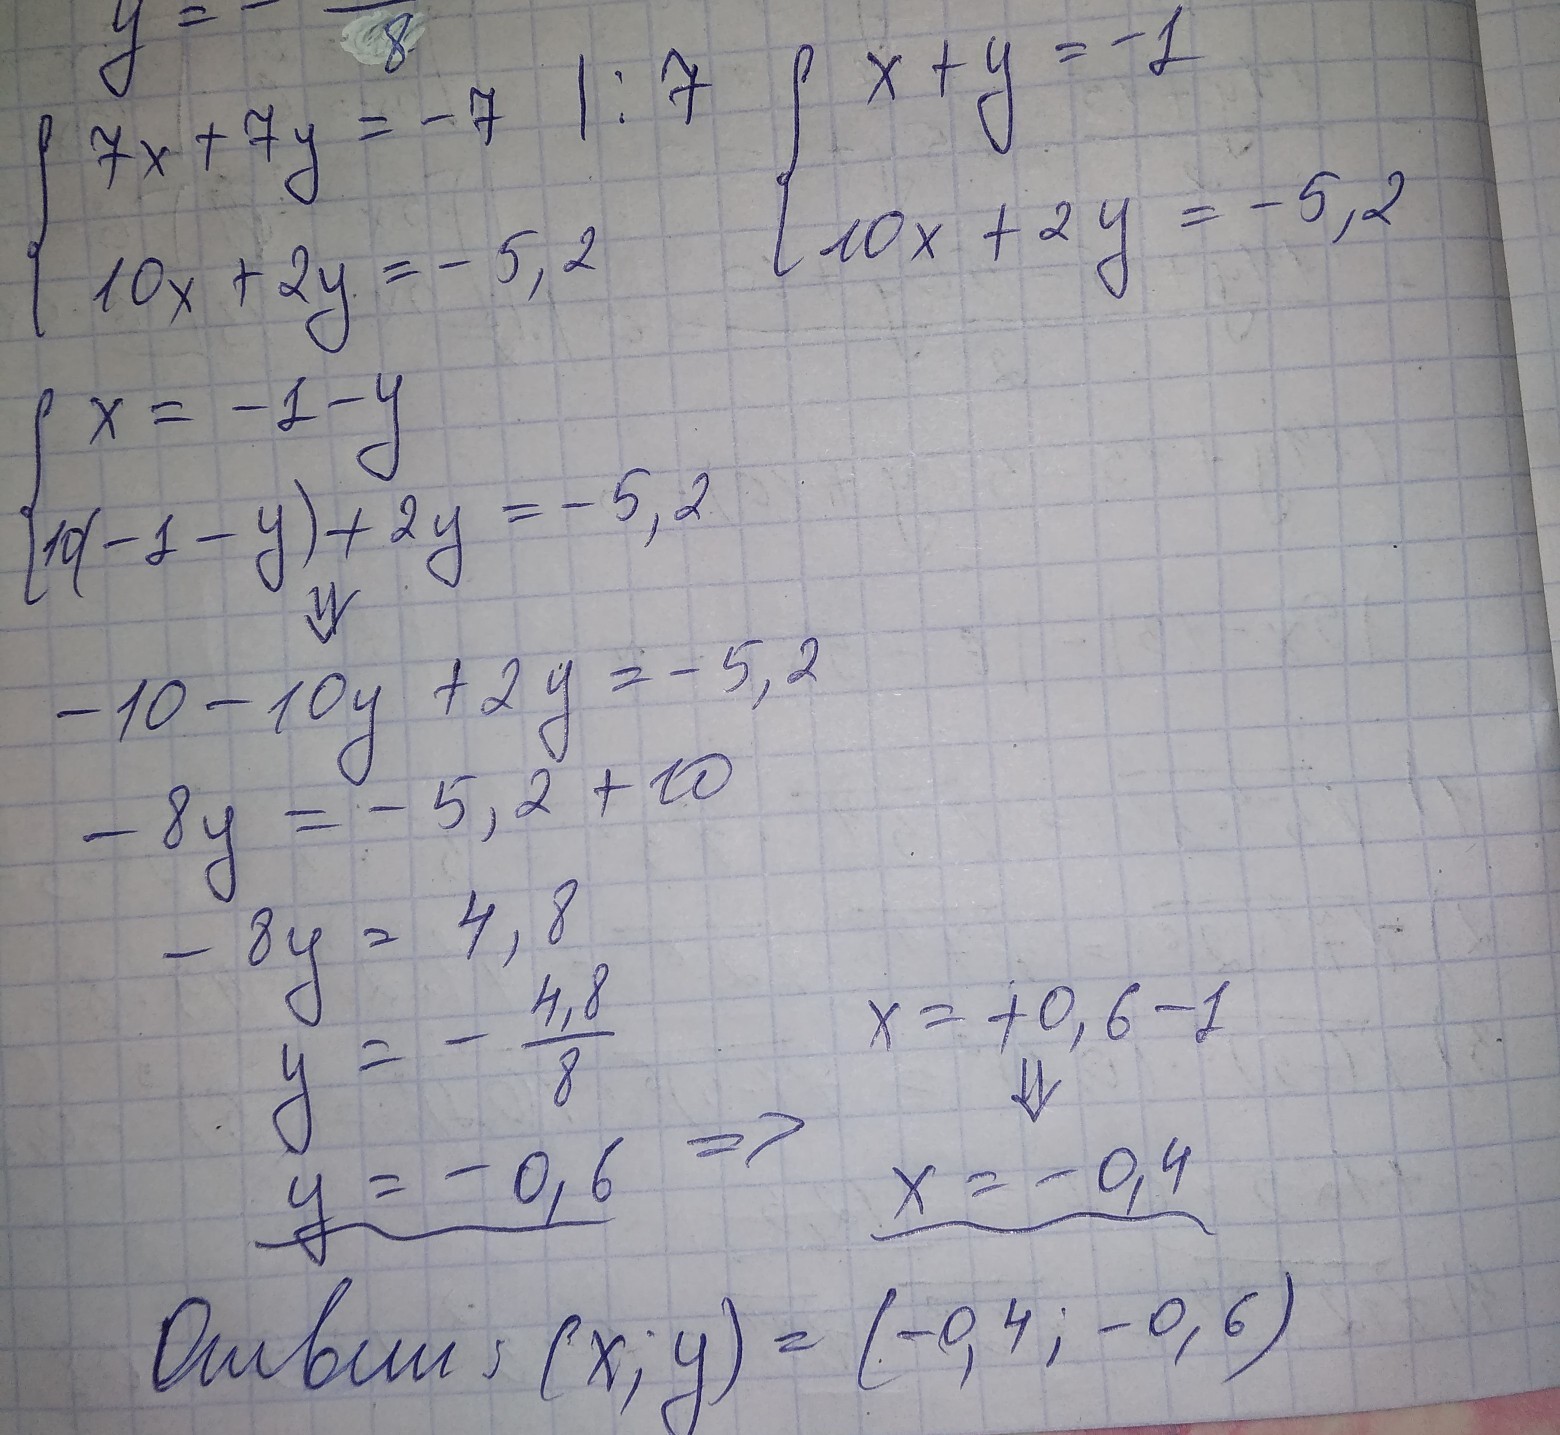 y = - 8
{ 7x + 7y = -7 | : 7 { x + y = -1
10x + 2y = -5,2 10x + 2y = -5,2
{ x = -1 - y
10(-1 - y) + 2y = -5,2
⇓
-10 - 10y + 2y = -5,2
-8y = -5,2 + 10
-8y = 4,8
y = - 4,8/8 x = +0,6 - 1
⇓
y = -0,6 => x = -0,4
Ответ: (x; y) = (-0,4; -0,6)